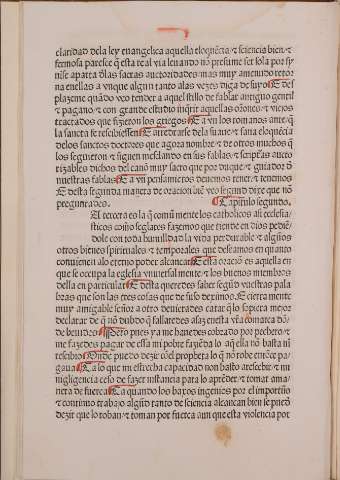 claridad dela ley euangelica aquella eloquẽcia ⁊ sciencia bien ⁊
fermosa paresce q̃ esta real via leuando nõ presume ser sola por sy
nise aparta dłas sacras auctoridades mas muy amenudo retor
na en ellas avnque algun tanto alas vezes diga de suyo E des
plazeme quãdo veo tender a aquel stillo de fablar antiguo gentil
⁊ pagano ⁊ con grande studio inq̃rir aquellas oziones ⁊ viejos
tractados que fizieron los griegos E avn los romanos antes q̃
la sancta fe rescibiessen E arredrarse dela suaue ⁊ sana eloquẽcia
delos sanctos doctores que agora nombre ⁊ de otros muchos q̃
los seguieron ⁊ siguen mesclando en sus fablas ⁊ scripturas auto
rizables dichos del canõ muy sacro que por
nuestras fablas E avn pensamientos deuemos tener ⁊ tenemos
E desta segunda manera de oracion biẽ veo segund dixe que nõ
preguntades. Capitulo segundo.
El tercera es la q̃ comũ mente los catholicos asi ecclesia
sticos como seglares fazemos que tiende en dios pediẽ
dole con toda humilldad la vida perdurable ⁊ algũos
otros bienes spirituales ⁊ temporales que deseamos en quanto
conuienen alo eterno poder alcançar E esta oraciõ es aquella en
que se occupa la eglesia vniuersal mente ⁊ los buenos miembros
della en particular E desta queredes saber segũd vuestras pala
bras que son las tres cosas que de suso deximos E cierta mente
muy amigable señor a otro deuierades catar q̃ lo sopiera mejor
declarar de q̃ nõ dubdo q̃ fallaredes asaz enesta vr̃a comarca dõ
de beuides Pero pues ya me hauedes cobrado por pechero ⁊
me fazedes pagar de esta mi pobre fazẽda lo aq̃ ella nõ basta ni
rescibio Onde puedo dezir cõel propheta lo q̃ nõ robe entõce pa
gaua Ca lo que mi estrecha capacidad non basto a rescebir ⁊ mi
nigligencia ceso de fazer instancia para lo aprẽder ⁊ tomar ama
nera de fuerça Ca quando los baxos ingenios por el importũo
⁊ continuo trabajo algũd tanto de sciencia alcançan bien se puede
dezir que lo roban ⁊ toman por fuerça aun que esta violencia por